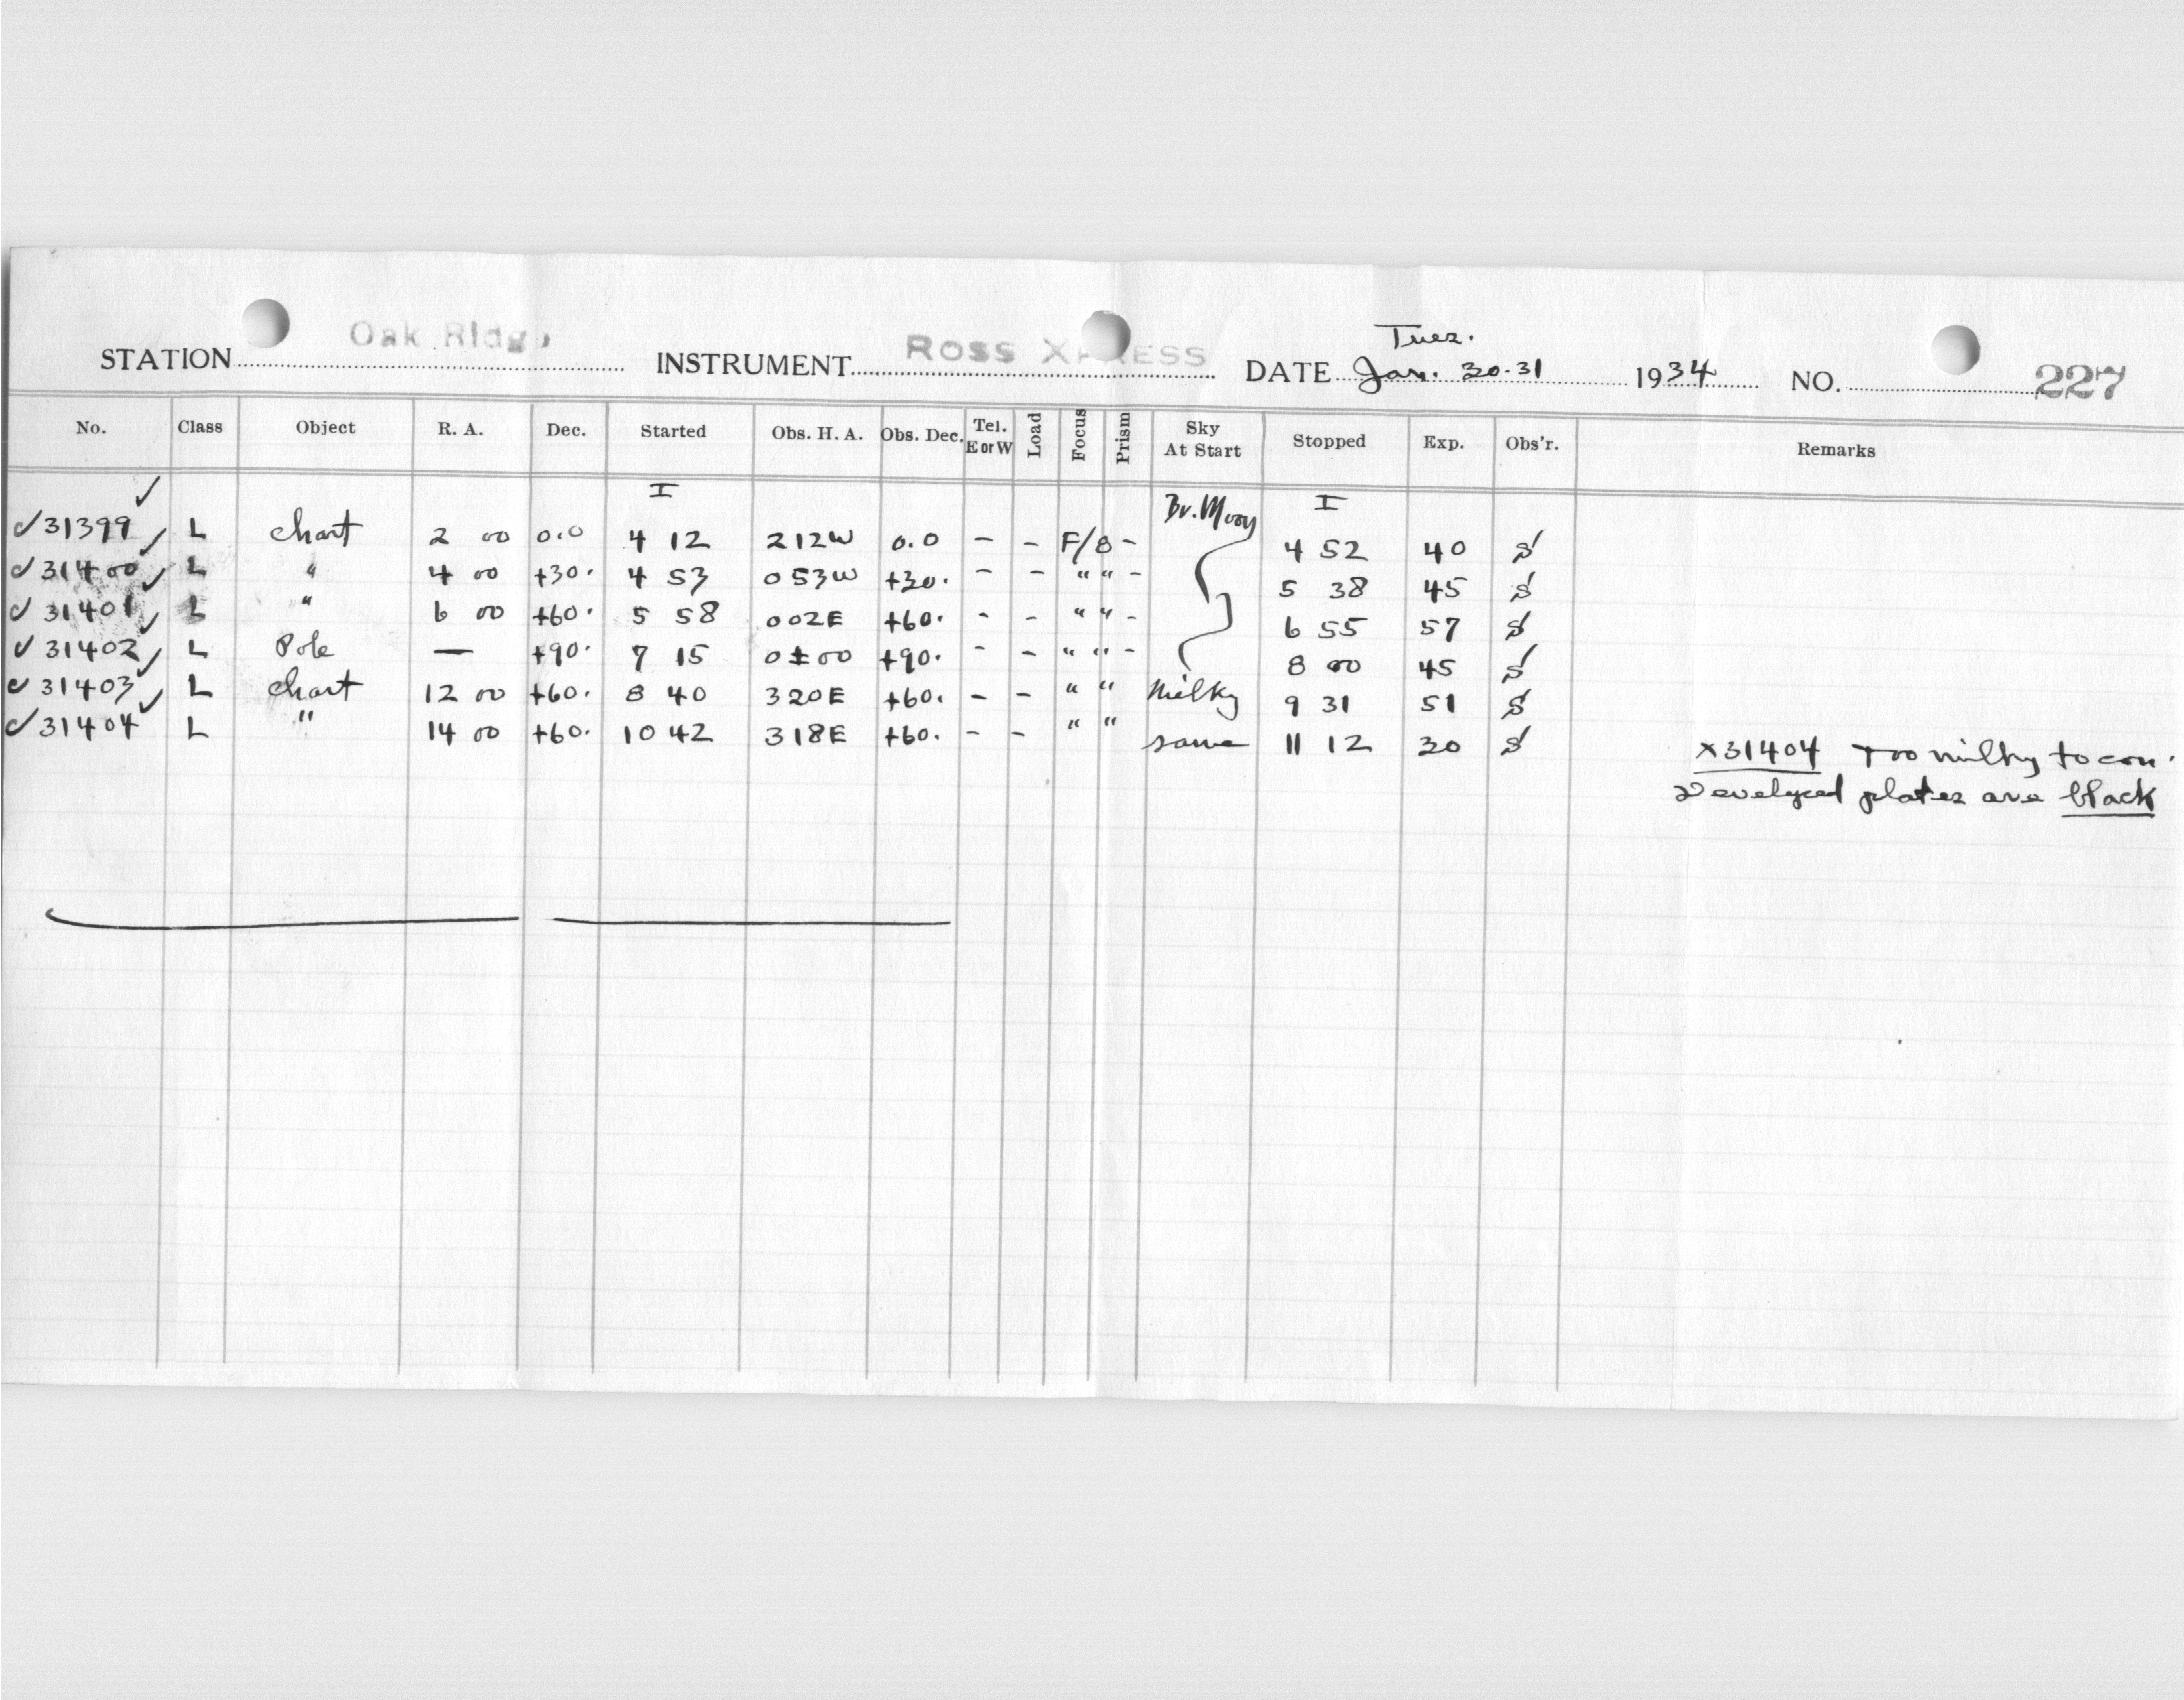 STATION Oak Ridge INSTRUMENT ROSS XPRESS DATE Tues. Jan. 30-31 1934 NO. 227
No. Class Object R. A. Dec. Started Obs. H. A. Obs. Dec. Tel. E or W Load Focus Prism Sky At Start Stopped Exp. Obs'r. Remarks
I Br. Moon I
✓31399 ✓ L Chart 2 00 0.0 4 12 212W 0.0 - - F/8 - 4 52 40 S
✓31400 ✓ L " 4 00 +30. 4 53 053W +30. - - " " - 5 38 45 S
✓31401 ✓ L " 6 00 +60. 5 58 002E +60. - - " " - 6 55 57 S
✓31402 ✓ L Pole — +90. 7 15 0±00 +90. - - " " - 8 00 45 S
✓31403 ✓ L Chart 12 00 +60. 8 40 320E +60. - - " " Milky 9 31 51 S
✓31404 ✓ L " 14 00 +60. 10 42 318E +60. - - " " same 11 12 30 S
X31404 Too milky to con.
Developed plates are black